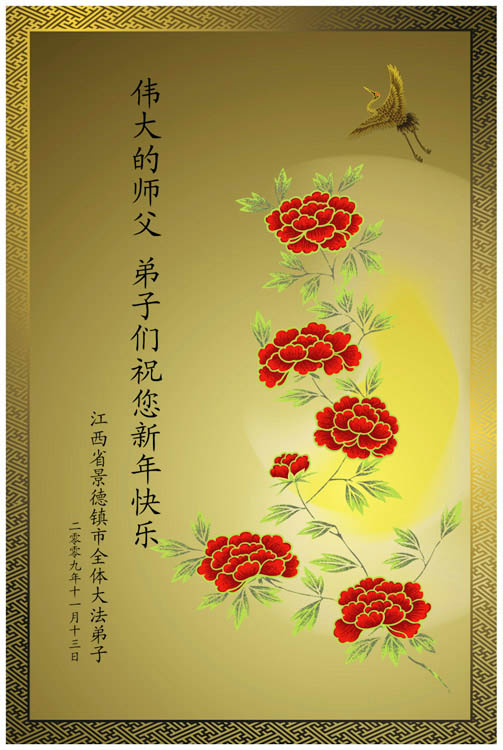 伟大的师父 弟子们祝您新年快乐
江西省景德镇市全体大法弟子
二零零九年十一月十三日